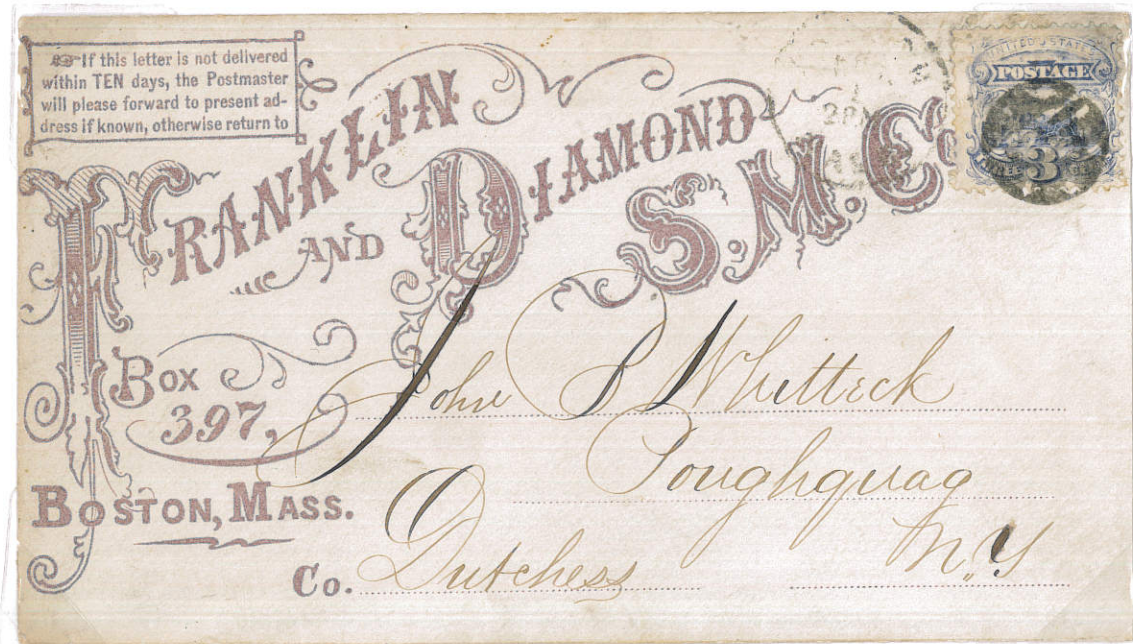 ☞If this letter is not delivered
within TEN days, the Postmaster
will please forward to present ad-
dress if known, otherwise return to
FRANKLIN
AND DIAMOND
S. M. Co
BOX
397,
BOSTON, MASS.
UNITED STATES
POSTAGE
3
John P Whitteck
Poughquag
Co. Dutchess N.Y